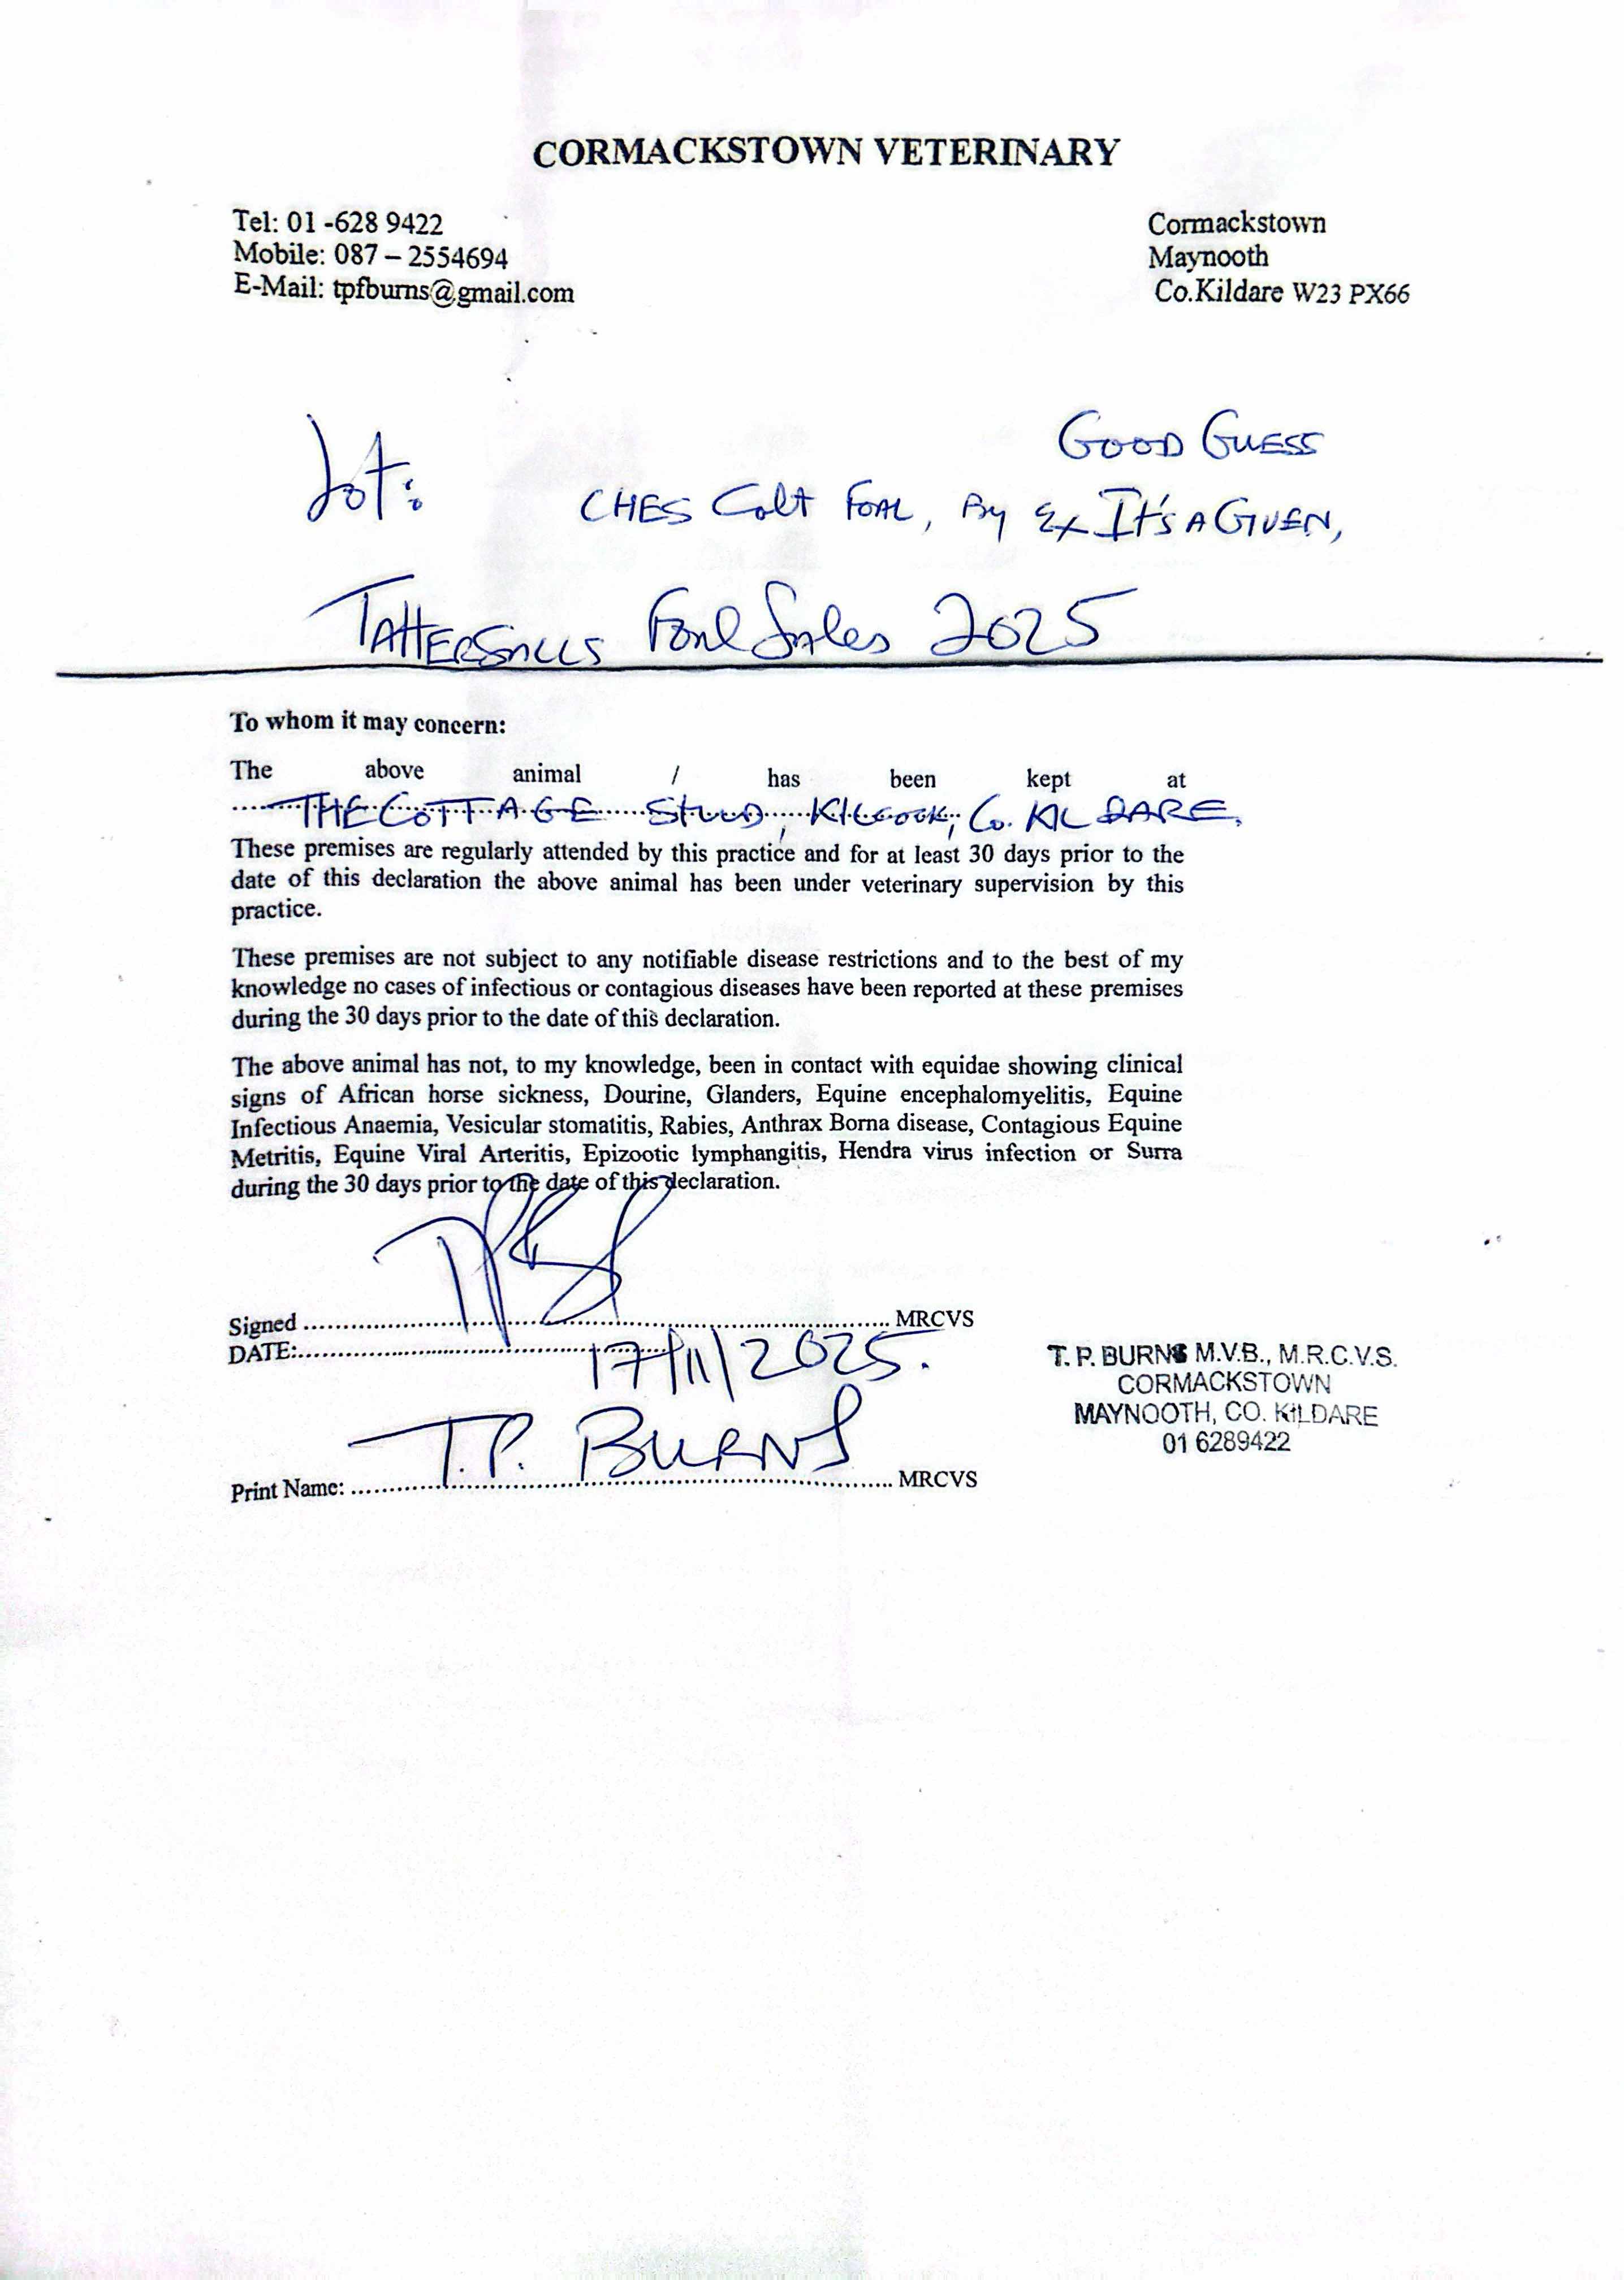 CORMACKSTOWN VETERINARY
Tel: 01 -628 9422
Mobile: 087 – 2554694
E-Mail: tpfburns@gmail.com
Cormackstown
Maynooth
Co.Kildare W23 PX66
Lot:
GOOD GUESS
CHES Colt FOAL, By Ex It's A GIVEN,
TATTERSALLS Foal Sales 2025
To whom it may concern:
The above animal / has been kept at
THE COTTAGE STUD, KILCOCK, Co. KILDARE.
These premises are regularly attended by this practice and for at least 30 days prior to the
date of this declaration the above animal has been under veterinary supervision by this
practice.
These premises are not subject to any notifiable disease restrictions and to the best of my
knowledge no cases of infectious or contagious diseases have been reported at these premises
during the 30 days prior to the date of this declaration.
The above animal has not, to my knowledge, been in contact with equidae showing clinical
signs of African horse sickness, Dourine, Glanders, Equine encephalomyelitis, Equine
Infectious Anaemia, Vesicular stomatitis, Rabies, Anthrax Borna disease, Contagious Equine
Metritis, Equine Viral Arteritis, Epizootic lymphangitis, Hendra virus infection or Surra
during the 30 days prior to the date of this declaration.
Signed ........ MRCVS
DATE:........ 17/11/2025.
Print Name: ........ T.P. BURNS ........ MRCVS
T. P. BURNS M.V.B., M.R.C.V.S.
CORMACKSTOWN
MAYNOOTH, CO. KILDARE
01 6289422